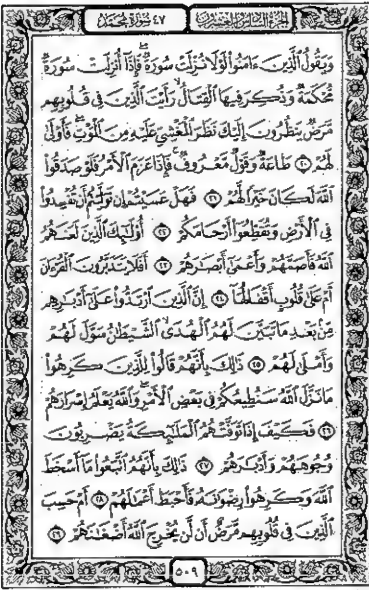 الجزء السادس والعشرون ٤٧ سورة محمد
وَيَقُولُ الَّذِينَ ءَامَنُوا لَوْلَا نُزِّلَتْ سُورَةٌ فَإِذَا أُنزِلَتْ سُورَةٌ
مُّحْكَمَةٌ وَذُكِرَ فِيهَا الْقِتَالُ رَأَيْتَ الَّذِينَ فِي قُلُوبِهِم
مَّرَضٌ يَنظُرُونَ إِلَيْكَ نَظَرَ الْمَغْشِيِّ عَلَيْهِ مِنَ الْمَوْتِ فَأَوْلَىٰ
لَهُمْ ٢٠ طَاعَةٌ وَقَوْلٌ مَّعْرُوفٌ فَإِذَا عَزَمَ الْأَمْرُ فَلَوْ صَدَقُوا
اللَّهَ لَكَانَ خَيْرًا لَّهُمْ ٢١ فَهَلْ عَسَيْتُمْ إِن تَوَلَّيْتُمْ أَن تُفْسِدُوا
فِي الْأَرْضِ وَتُقَطِّعُوا أَرْحَامَكُمْ ٢٢ أُولَٰئِكَ الَّذِينَ لَعَنَهُمُ
اللَّهُ فَأَصَمَّهُمْ وَأَعْمَىٰ أَبْصَارَهُمْ ٢٣ أَفَلَا يَتَدَبَّرُونَ الْقُرْءَانَ
أَمْ عَلَىٰ قُلُوبٍ أَقْفَالُهَا ٢٤ إِنَّ الَّذِينَ ارْتَدُّوا عَلَىٰ أَدْبَارِهِم
مِّن بَعْدِ مَا تَبَيَّنَ لَهُمُ الْهُدَى الشَّيْطَانُ سَوَّلَ لَهُمْ
وَأَمْلَىٰ لَهُمْ ٢٥ ذَٰلِكَ بِأَنَّهُمْ قَالُوا لِلَّذِينَ كَرِهُوا
مَا نَزَّلَ اللَّهُ سَنُطِيعُكُمْ فِي بَعْضِ الْأَمْرِ وَاللَّهُ يَعْلَمُ إِسْرَارَهُمْ
٢٦ فَكَيْفَ إِذَا تَوَفَّتْهُمُ الْمَلَائِكَةُ يَضْرِبُونَ
وُجُوهَهُمْ وَأَدْبَارَهُمْ ٢٧ ذَٰلِكَ بِأَنَّهُمُ اتَّبَعُوا مَا أَسْخَطَ
اللَّهَ وَكَرِهُوا رِضْوَانَهُ فَأَحْبَطَ أَعْمَالَهُمْ ٢٨ أَمْ حَسِبَ
الَّذِينَ فِي قُلُوبِهِم مَّرَضٌ أَن لَّن يُخْرِجَ اللَّهُ أَضْغَانَهُمْ ٢٩
٥٠٩